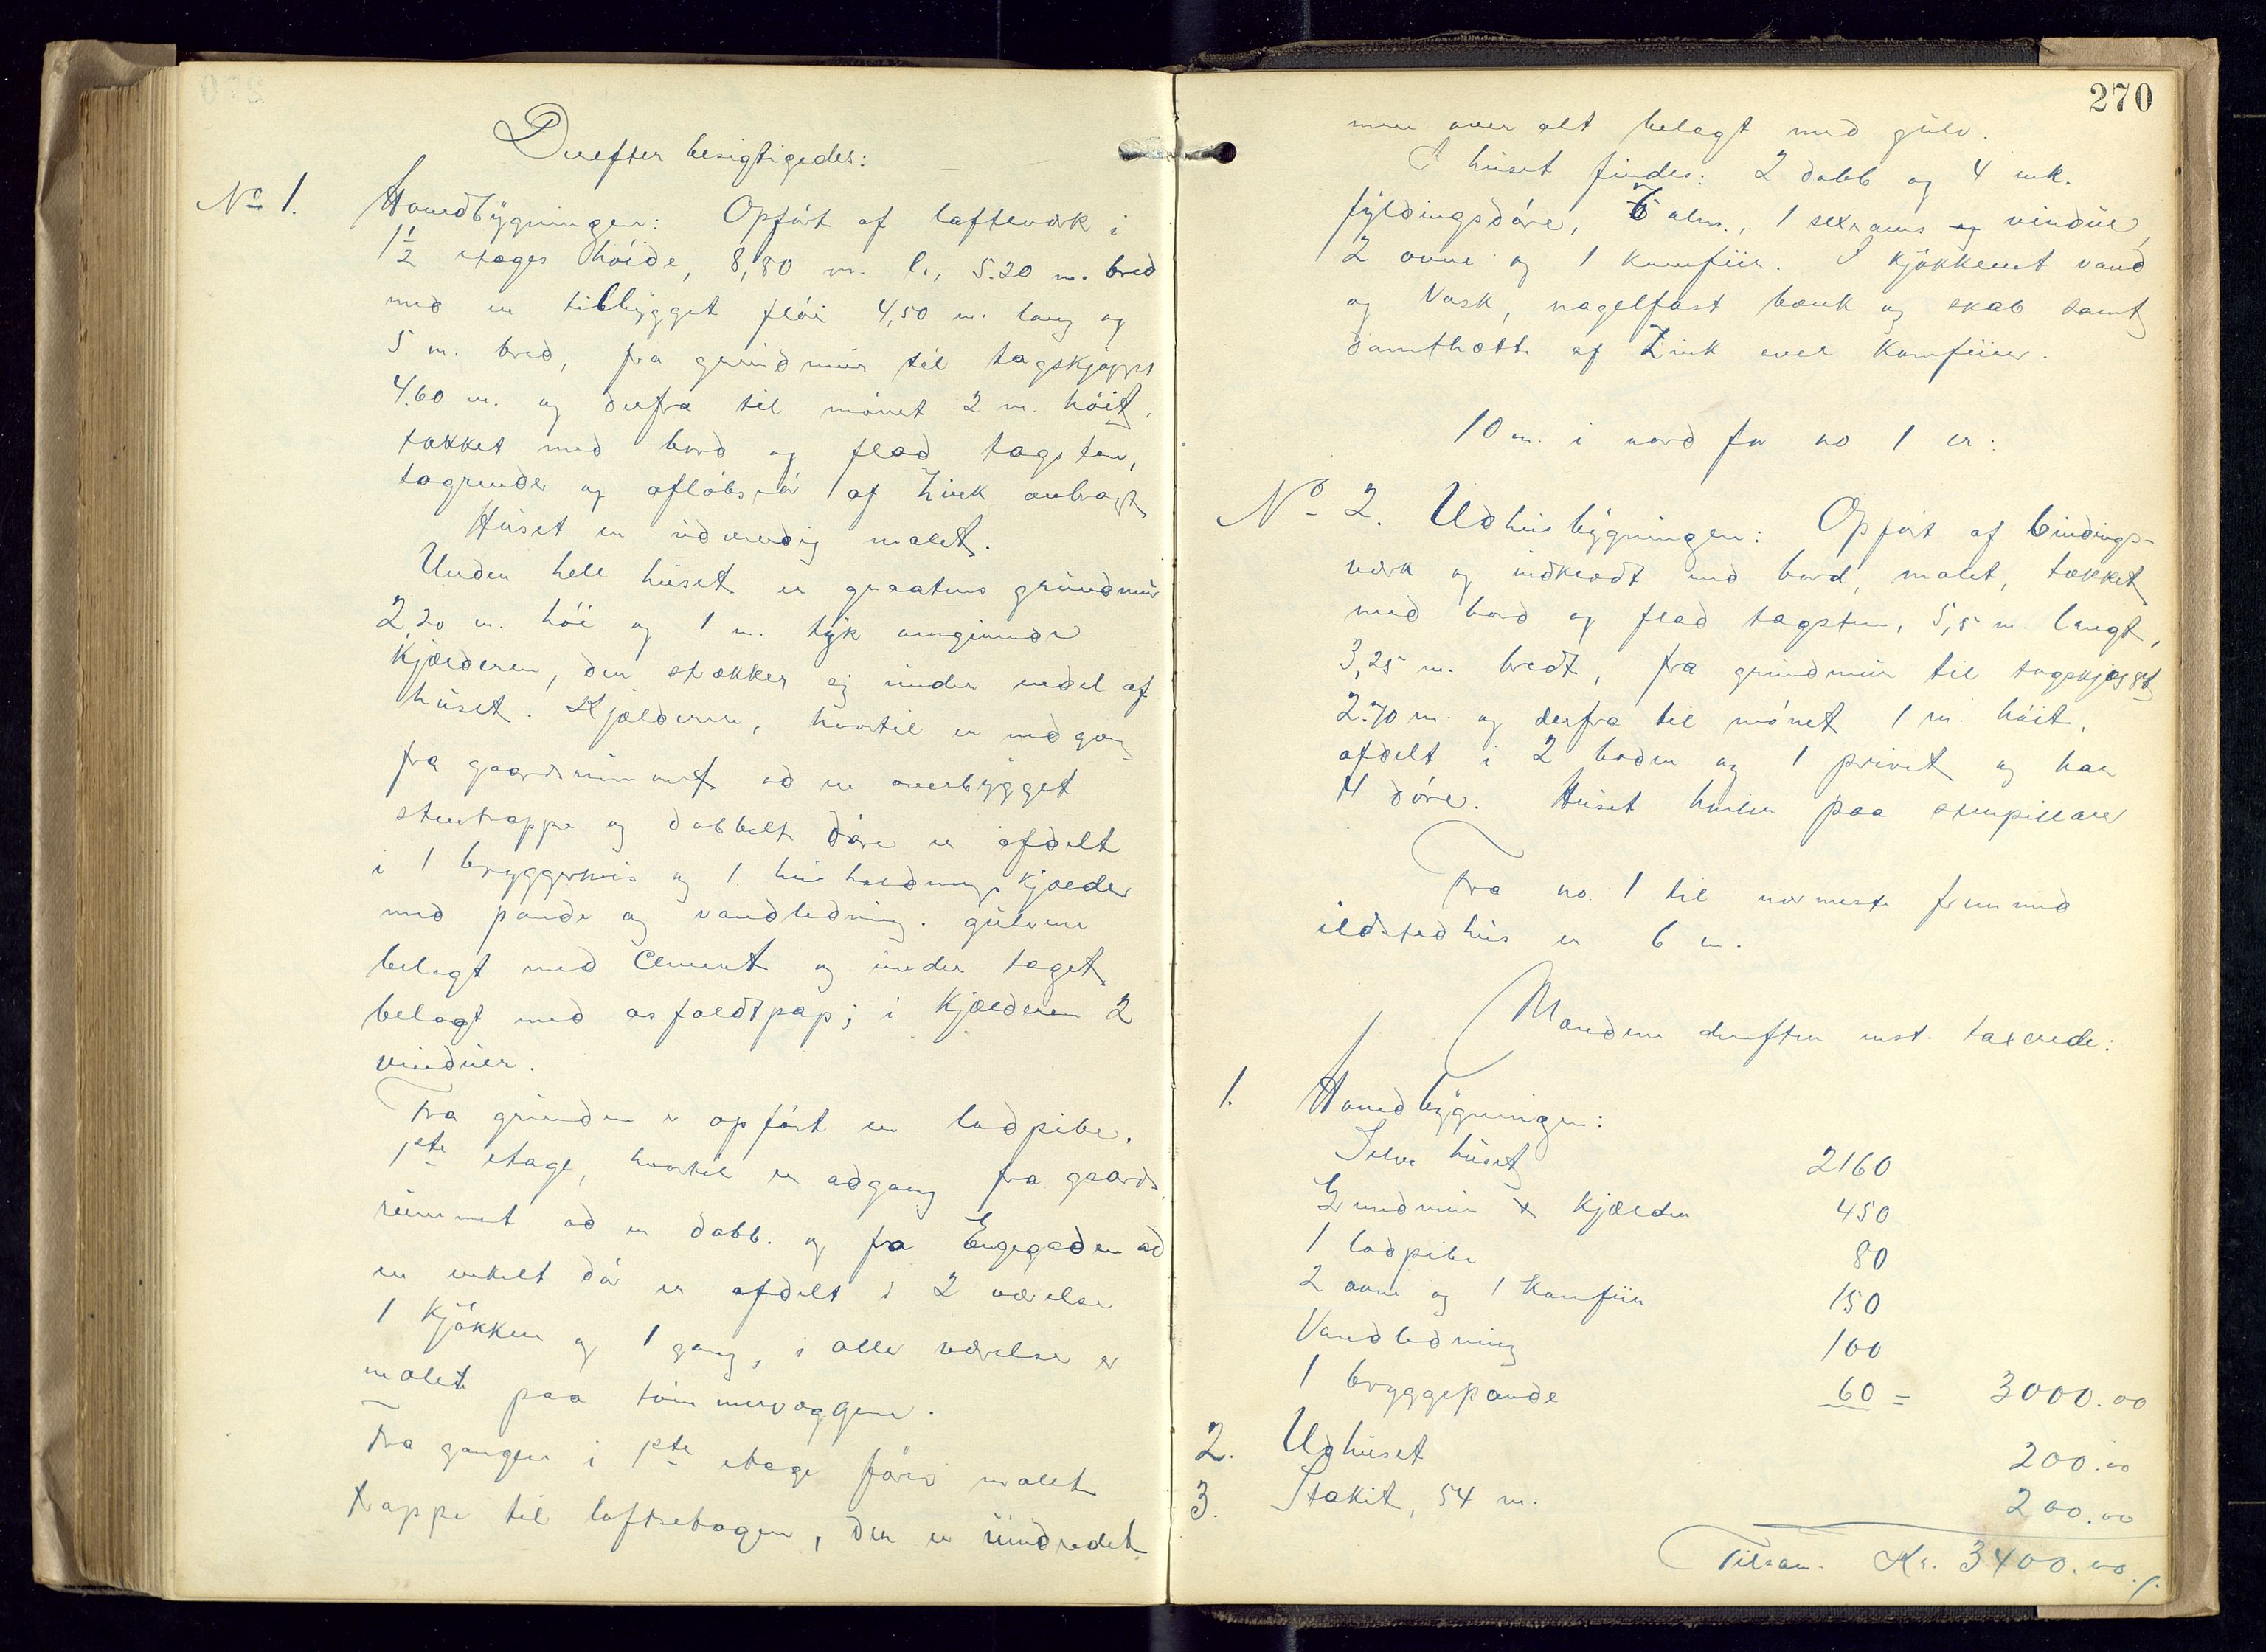 Derefter besigtigedes:
No 1. Hovedbygningen: Opført af lafteværk i
1½ etages høide, 8,80 m. l., 5.20 m. bred
med en tilbygget fløi 4,50 m. lang og
5 m. bred, fra grundmur til tagskjægget
4.60 m. og derfra til mønet 2 m. høit,
tækket med bord og flad tagsten,
tagrender og afløbsrør af Zink anbragt
Huset er udvendig malet.
Under hele huset er graastens grundmur
2,20 m. høi og 1 m. tyk omgivende
Kjælderen, der strækker sig under endel af
huset. Kjælderen, hvortil er nedgang
fra gaardsrummet ad en overbygget
stentrappe og dobbelt døre er afdelt
i 1 bryggerhus og 1 husholdnings kjælder
med pande og vandledning. gulvene
belagt med Cement og under taget
belagt med asfaldtpap; i Kjælderen 2
vinduer.
Fra grunden er opført en ladpibe.
1ste etage, hvortil er adgang fra gaards
rummet ad en dobb. og fra Engegaden ad
en enkelt dør er afdelt i 2 værelse
1 Kjøkken og 1 gang, i alle værelse er
malet paa tømmervæggene.
Fra gangen i 1ste etage fører malet
trappe til loftsetagen, der er uindredet
270
men over alt belagt med gulv.
I huset findes: 2 dobb og 4 enk.
fyldingsdøre, 6 alm., 1 sexrams og vindue,
2 ovne og 1 Komfuir. I Kjøkkenet vand
og Vask, nagelfast bænk og skab samt
damfhætte af Zink over Komfuier.
10 m. i nord for no 1 er:
No 2. Udhusbygningen: Opført af bindings-
værk og indklædt med bord, malet, tækket
med bord og flad tagsten, 5,5 m. langt,
3,25 m. bredt, fra grundmur til tagskjægget
2.70 m. og derfra til mønet 1 m. høit,
afdelt i 2 boder og 1 privet og har
4 døre. Huset hviler paa stenpillarer
Fra no. 1 til nærmeste fremmed
ildstedhus er 6 m.
Mændene derefter enst. taxerede:
1. Hovedbygningen:
Selve huset 2160
Grundmur & Kjælder 450
1 ladpibe 80
2 ovne og 1 Komfuir 150
Vandledning 100
1 bryggepande 60 = 3000.00
2. Udhuset 200.00
3. Stakit, 54 m. 200.00
Tilsam. Kr. 3400.00./.